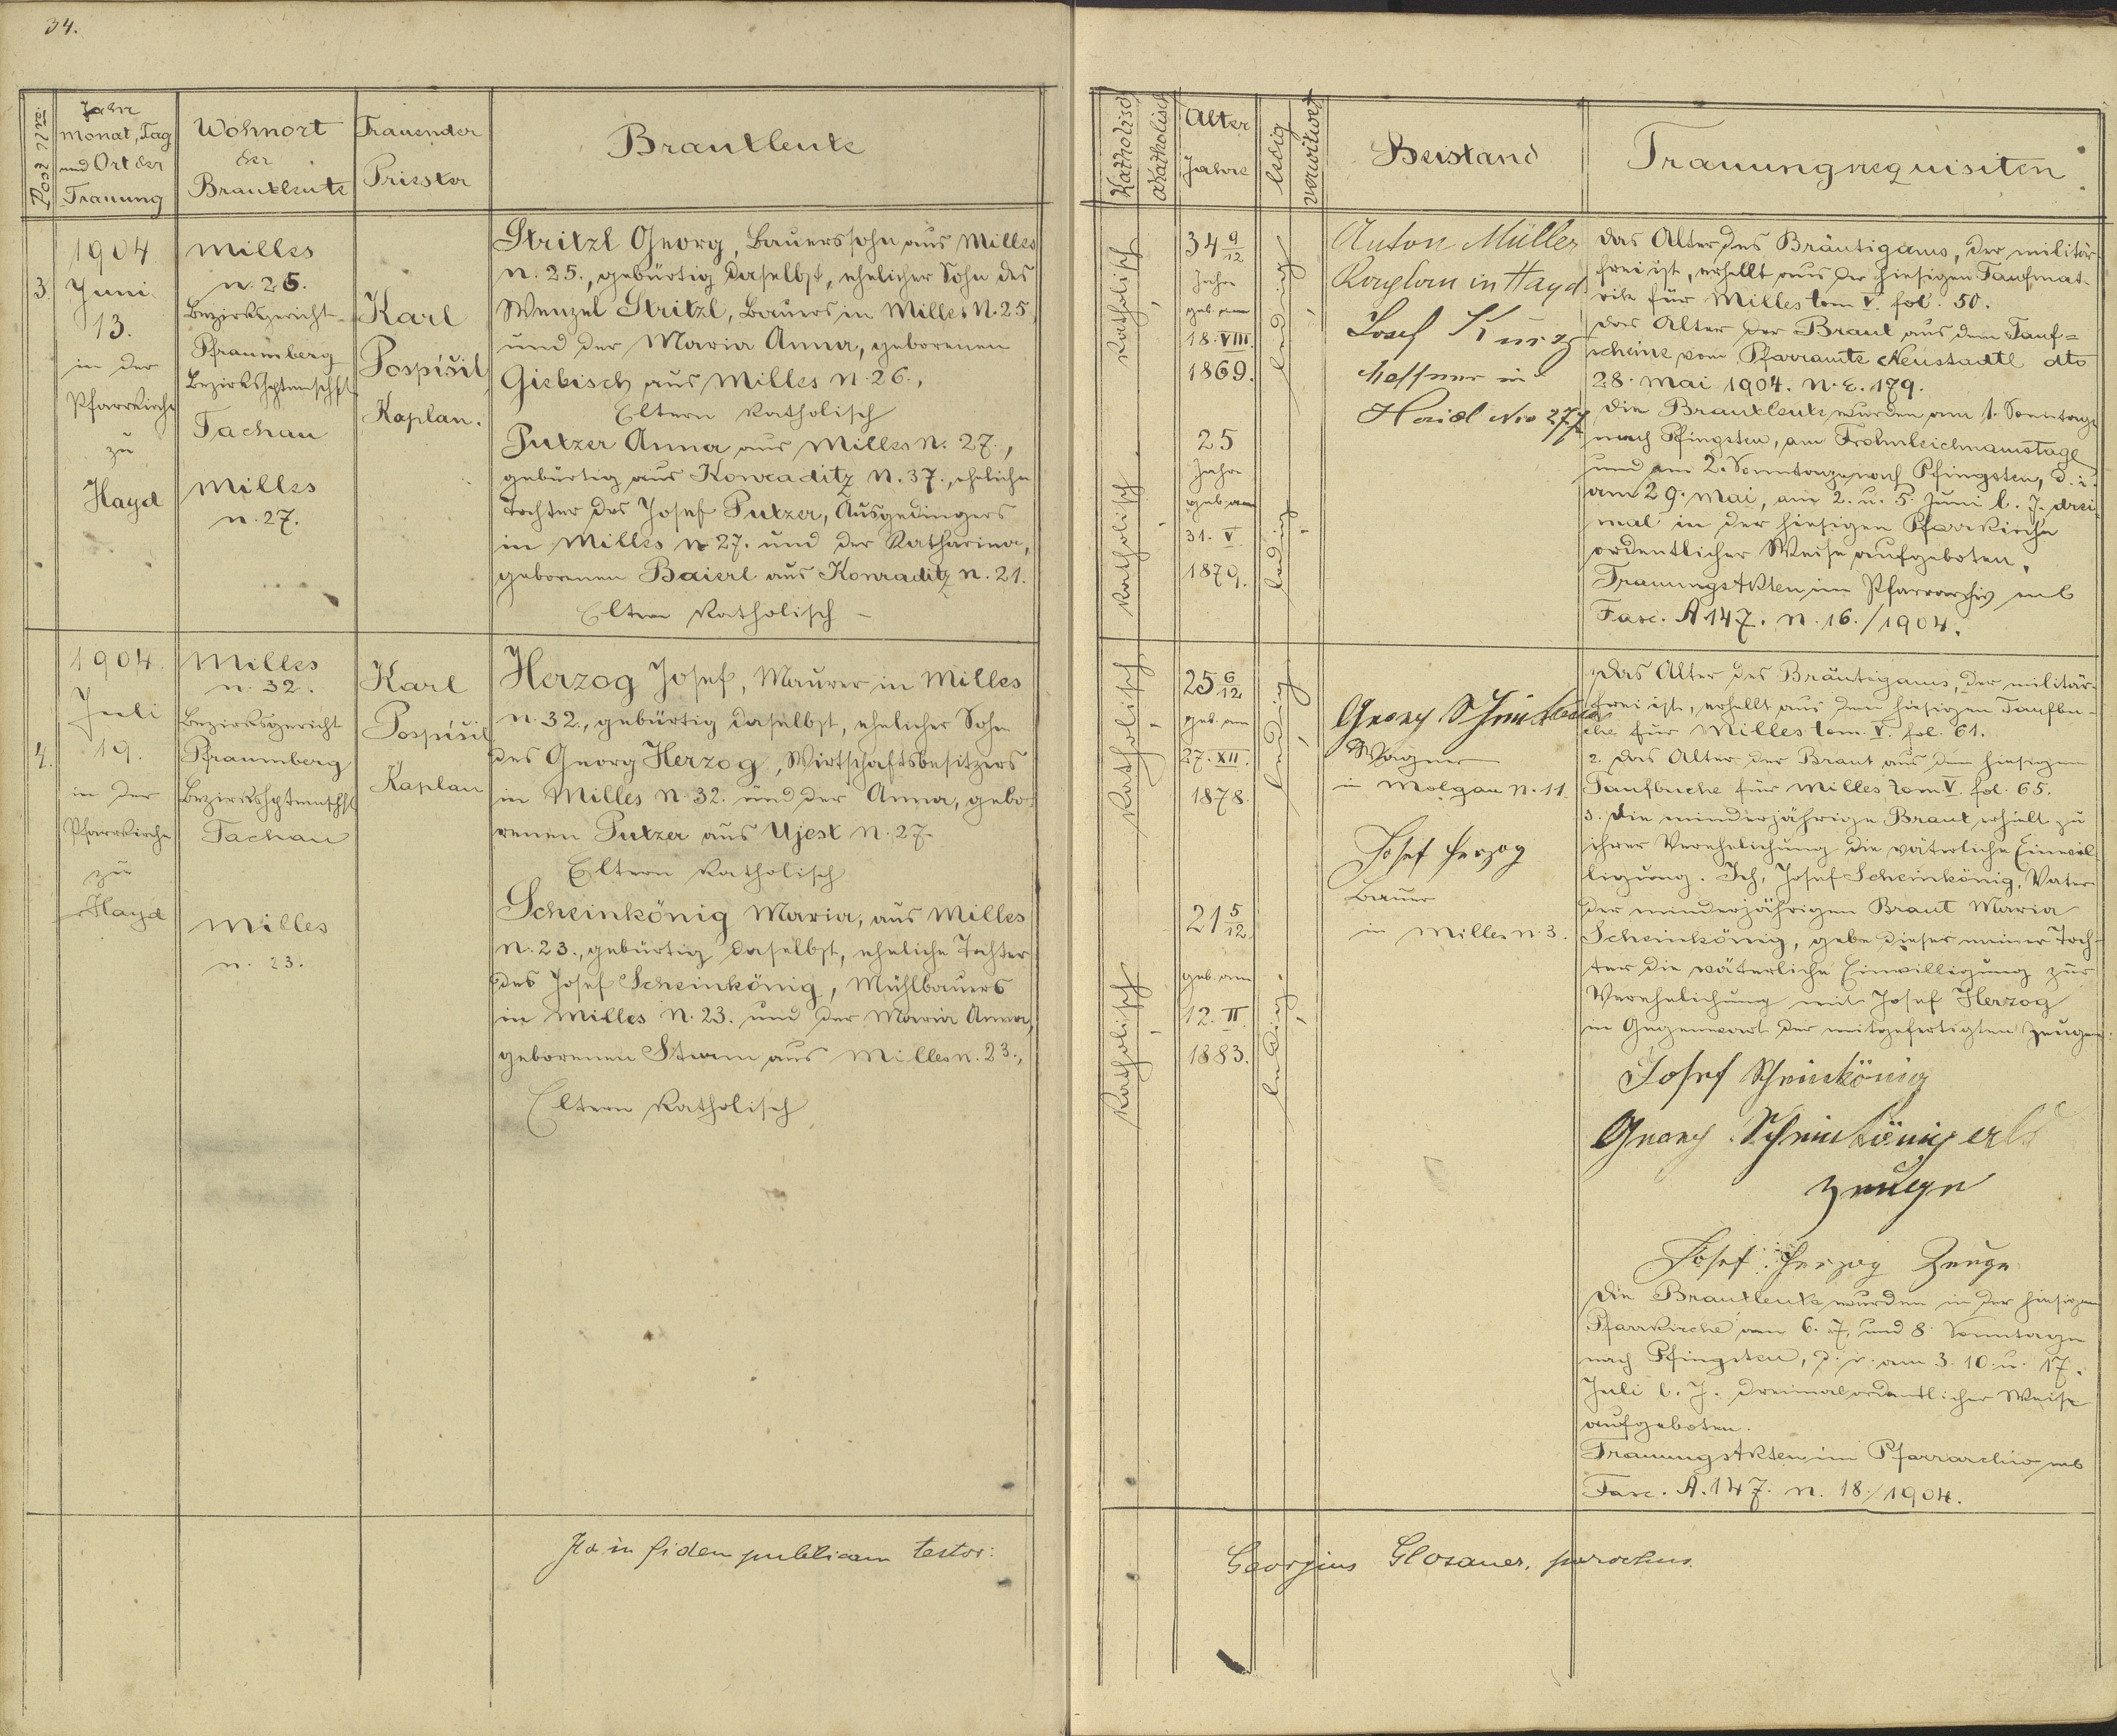 34.
Post Nro:
Jahr
Monat, Tag
und Ort der
Trauung
Wohnort
der
Brautleute
Trauender
Priester
Brautleute
3.
1904
Juni
13.
in der
Pfarrkirche
zu
Hayd
Milles
n. 25.
Bezirksgericht
Pfraumberg
Bezirkshptmschft
Tachau
Milles
n. 27.
Karl
Pospíšil
Kaplan.
Stritzl Georg, Bauerssohn aus Milles
n. 25., gebürtig daselbst, ehelicher Sohn des
Wenzel Stritzl, Bauers in Milles N. 25
und der Maria Anna, geborenen
Giebisch aus Milles n. 26.,
Eltern katholisch
Putzer Anna aus Milles N. 27.,
gebürtig aus Konraditz N. 37., eheliche
Tochter des Josef Putzer, Ausgedingers
in Milles n 27. und der Katharina,
geborenen Baierl aus Konraditz n. 21.
Eltern katholisch –
4.
1904.
Juli
19.
in der
Pfarrkirche
zu
Hayd
Milles
n. 32.
Bezirksgericht
Pfraumberg
Bezirkshptmschft
Tachau
Milles
n. 23.
Karl
Pospíšil
Kaplan
Herzog Josef, Maurer in Milles
n. 32., gebürtig daselbst, ehelicher Sohn
des Georg Herzog, Wirtschaftsbesitzers
in Milles n. 32. und der Anna, gebo-
renen Putzer aus Ujest n. 27.
Eltern katholisch
Scheinkönig Maria, aus Milles
n. 23., gebürtig daselbst, eheliche Tochter
des Josef Scheinkönig, Mühlbauers
in Milles N. 23. und der Maria Anna,
geborenen Sturm aus Milles n. 23.,
Eltern katholisch
Ita in fidem publicam testor:
Katholisch
Akatholisch
Alter
Jahre
ledig
verwitwet
Beistand
Trauungsrequisiten
katholisch
34 9/12
Jahre
geb. am
18. VIII.
1869.
ledig
katholisch
25
Jahre
geb. am
31. V.
1879.
ledig
Anton Müller
in Hayd
Josef Kunz
Meßner in
Haid Nro 277
Das Alter des Bräutigams, der militär-
frei ist, erhellt aus der hiesigen Taufmat-
rik für Milles tom V. fol. 50.
Das Alter der Braut aus dem Tauf=
scheine vom Pfarramte Neustadtl dto
28. Mai 1904. N. E. 179.
Die Brautleute wurden am 1. Sonntage
nach Pfingsten, am Frohnleichnamstage
und am 2. Sonntage nach Pfingsten, d. i.
am 29. Mai, am 2. u. 5. Juni l. J. drei-
mal in der hiesigen Pfarrkirche
ordentlicher Weise aufgeboten.
Trauungsakten im Pfarrarchiv sub
Fasc. A 147. N. 16./1904.
katholisch
25 6/12
geb. am
27. XII.
1878.
ledig
katholisch
21 5/12
geb. am
12. II.
1883.
ledig
Georg
Wagner
in Molgau N. 11.
Josef Herzog
Bauer
in Milles n. 3.
1. Das Alter des Bräutigams, der militär-
frei ist, erhellt aus dem hiesigen Taufbu-
che für Milles tom. V. fol. 61.
2. Das Alter der Braut aus dem hiesigen
Taufbuche für Milles tom V. fol. 65.
3. Die minderjährige Braut erhielt zu
ihrer Verehelichung die väterliche Einwil-
ligung. Ich, Josef Scheinkönig, Vater
der minderjährigen Braut Maria
Scheinkönig, gebe dieser meiner Toch-
ter die väterliche Einwilligung zur
Verehelichung mit Josef Herzog
in Gegenwart der mitgefertigten Zeugen.
Josef Scheinkönig
Georg Scheinkönig als
Zeuge
Josef Herzog Zeuge
Die Brautleute wurden in der hiesigen
Pfarrkirche am 6. 7. und 8. Sonntage
nach Pfingsten, d. i. am 3. 10. u. 17.
Juli l. J. dreimal ordentlicher Weise
aufgeboten.
Trauungsakten im Pfarrarchiv sub
Fasc. A. 147. n. 18./1904.
Georgius Glosauer, parochus.